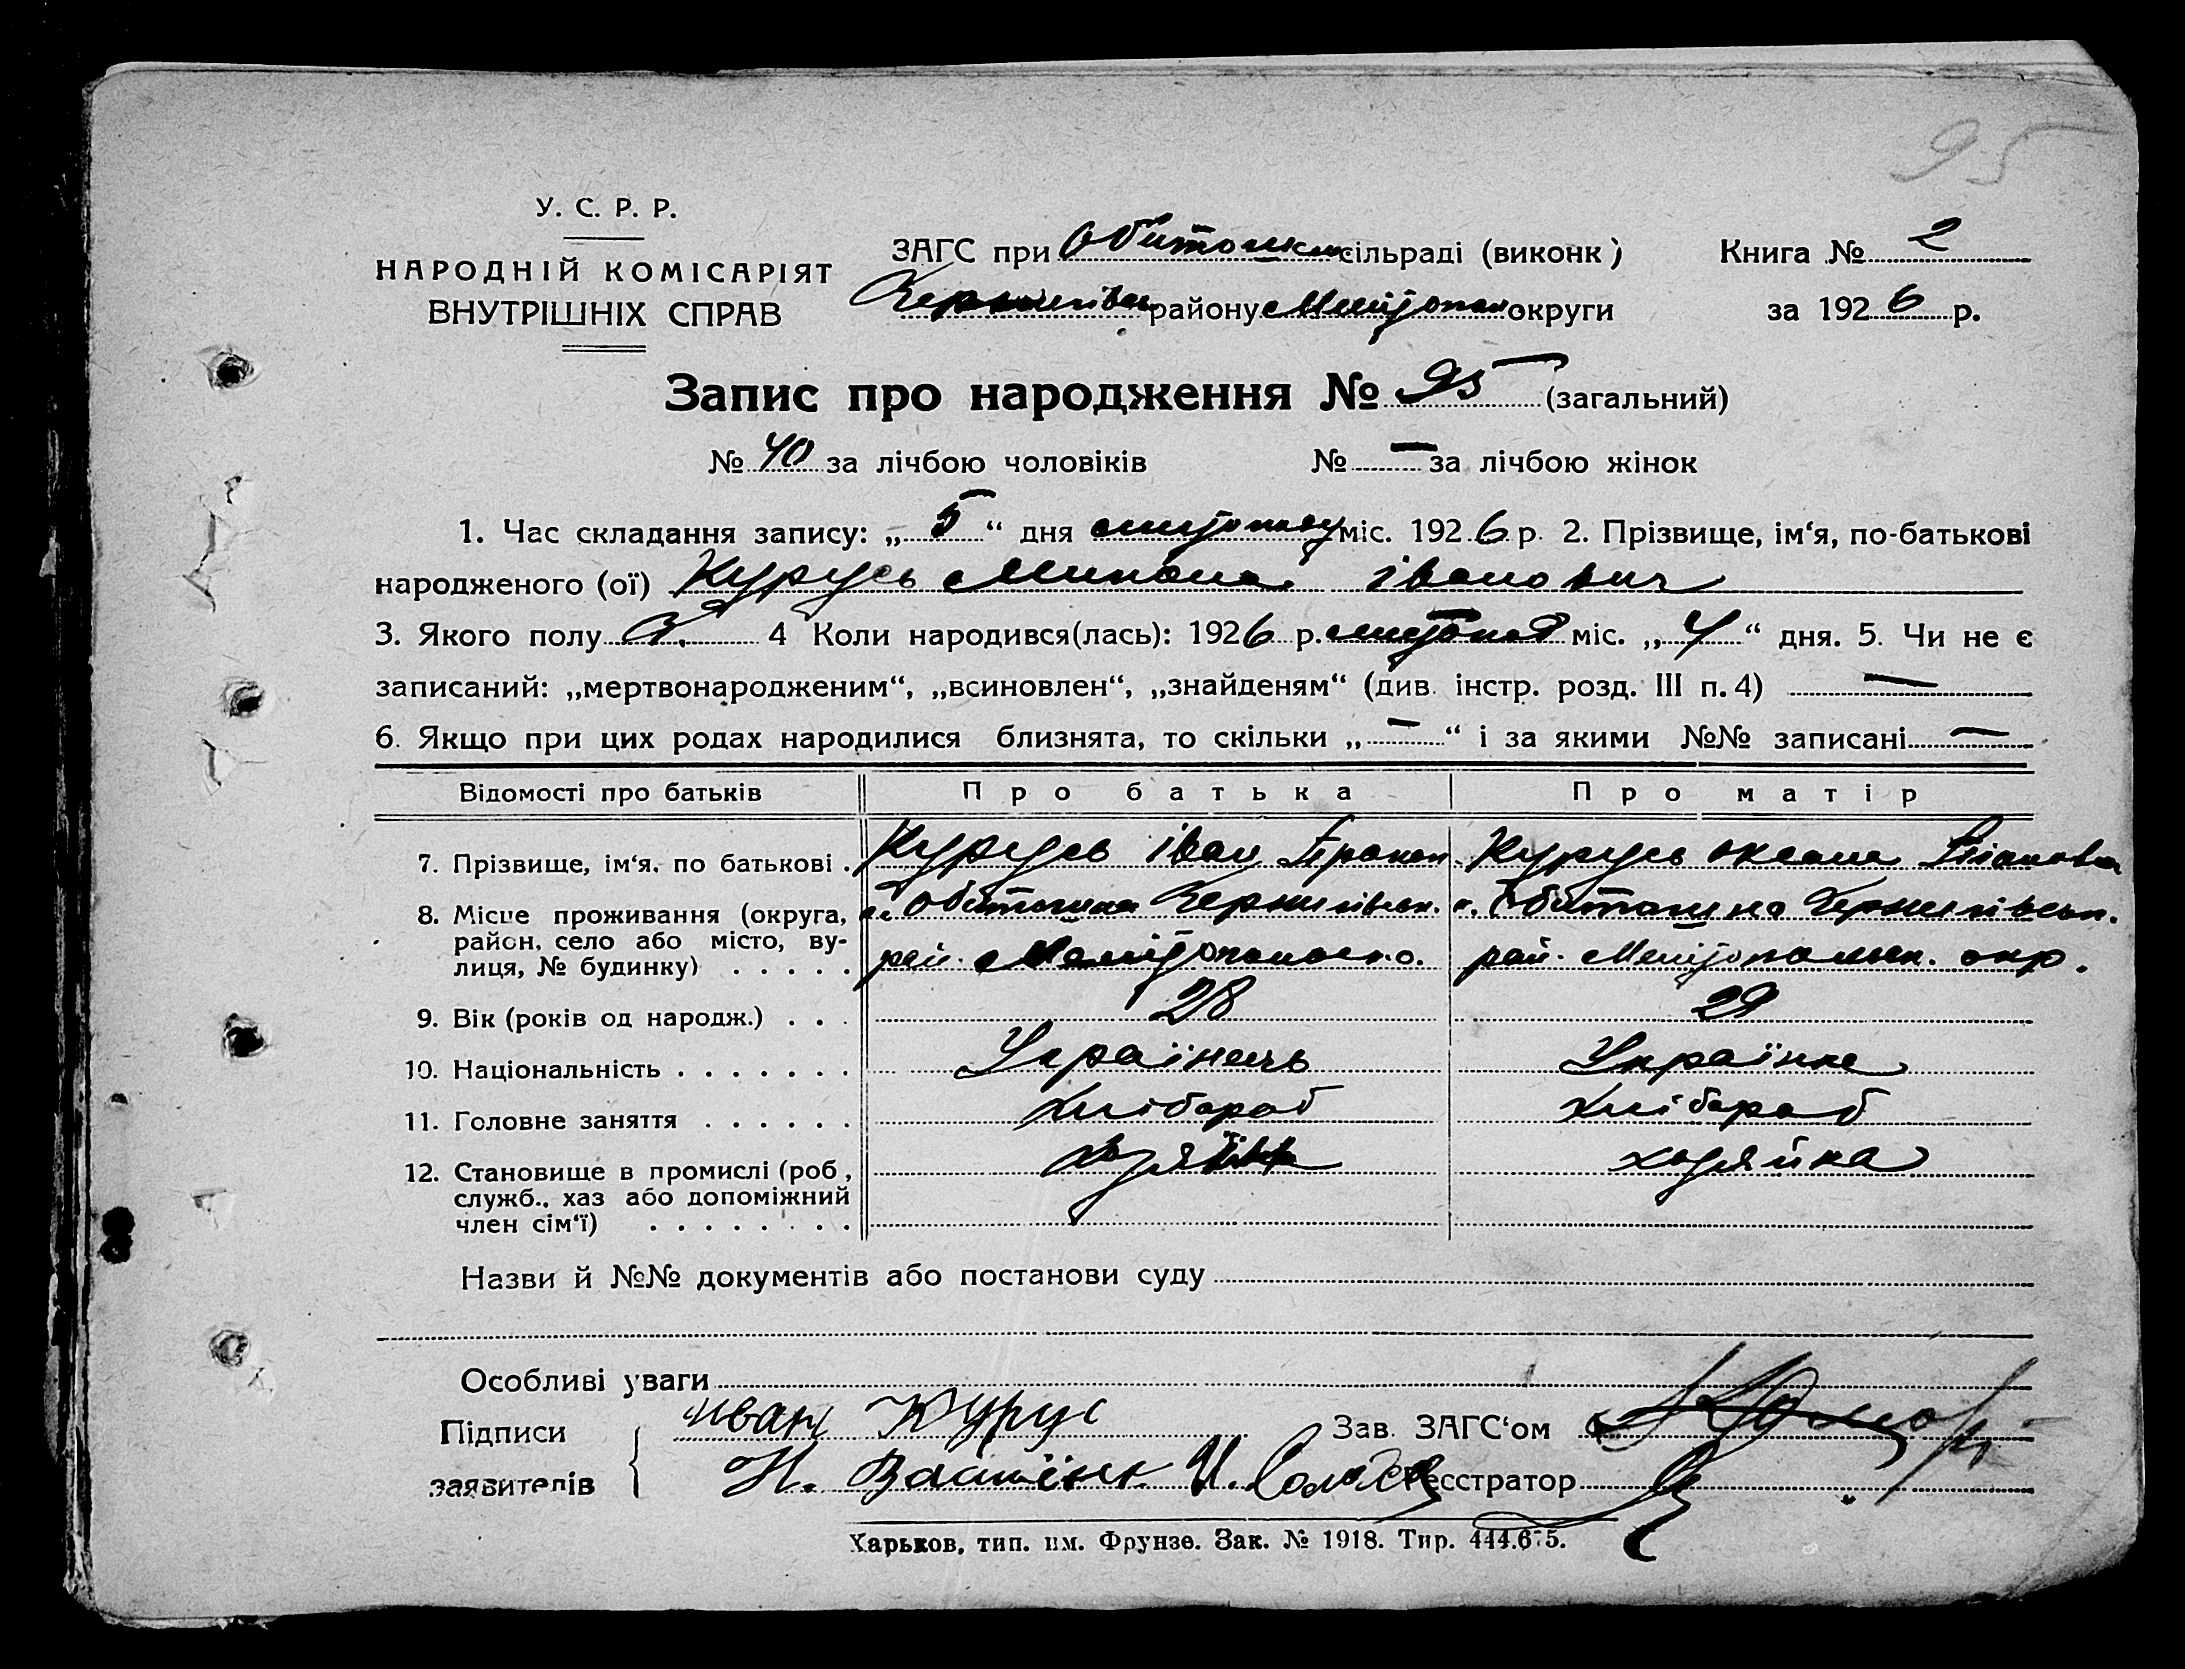 95
У. С. Р. Р.
НАРОДНІЙ КОМІСАРІЯТ
ВНУТРІШНІХ СПРАВ
ЗАГС при Обиточн сільраді (виконк)
Чернигівськ району Меліtопол округи
Книга № 2
за 1926 р.
Запис про народження № 95 (загальний)
№ 40 за лічбою чоловіків № — за лічбою жінок
1. Час складання запису: „ 5 “ дня листопаду міс. 1926 р. 2. Прізвище, ім‘я, по-батькові
народженого (ої) Курусь Микола іванович
3. Якого полу Ч. 4 Коли народився(лась): 1926 р. листопад міс. „ 4 “ дня. 5. Чи не є
записаний: „мертвонародженим“, „всиновлен“, „знайденям“ (див. інстр. розд. III п. 4) —
6. Якщо при цих родах народилися близнята, то скільки „ — “ і за якими №№ записані —
Відомості про батьків Про батька Про матір
7. Прізвище, ім‘я, по батькові . Курусь іван Прокоп. Курусь оксана
8. Місце проживання (округа, район, село або місто, вулиця, № будинку) . . . . . с. Обиточна Чернигівськ. с. Обиточна Чернигівськ.
рай. Мелітопольсько. рай. Мелітопольськ. окр.
9. Вік (років од народж.) . . . 28 29
10. Національність . . . . . . . Українець Українка
11. Головне заняття . . . . . . Хлібороб Хлібороб
12. Становище в промислі (роб., служб., хаз або допоміжний член сім‘ї) . . . . . . . . Хозяїн хозяйка
Назви й №№ документів або постанови суду
Особливі уваги
Підписи заявителів { Иван Курус
Зав. ЗАГС‘ом
Н. И. Реєстратор
Харьков, тип. им. Фрунзе. Зак. № 1918. Тир. 444.675.